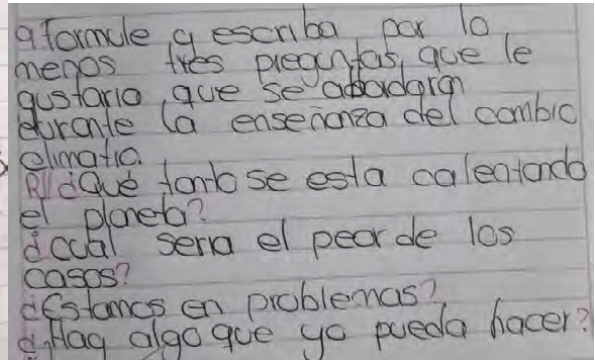 9. formule y escriba por lo
menos tres preguntas, que le
gustaria, que se abordaran
durante la enseñanza del cambio
climatio.
R// ¿Qué tanto se esta calentando
el planeta?
¿cual seria el pear de los
casos?
¿Estamos en problemas?
¿Hay algo que yo pueda hacer?